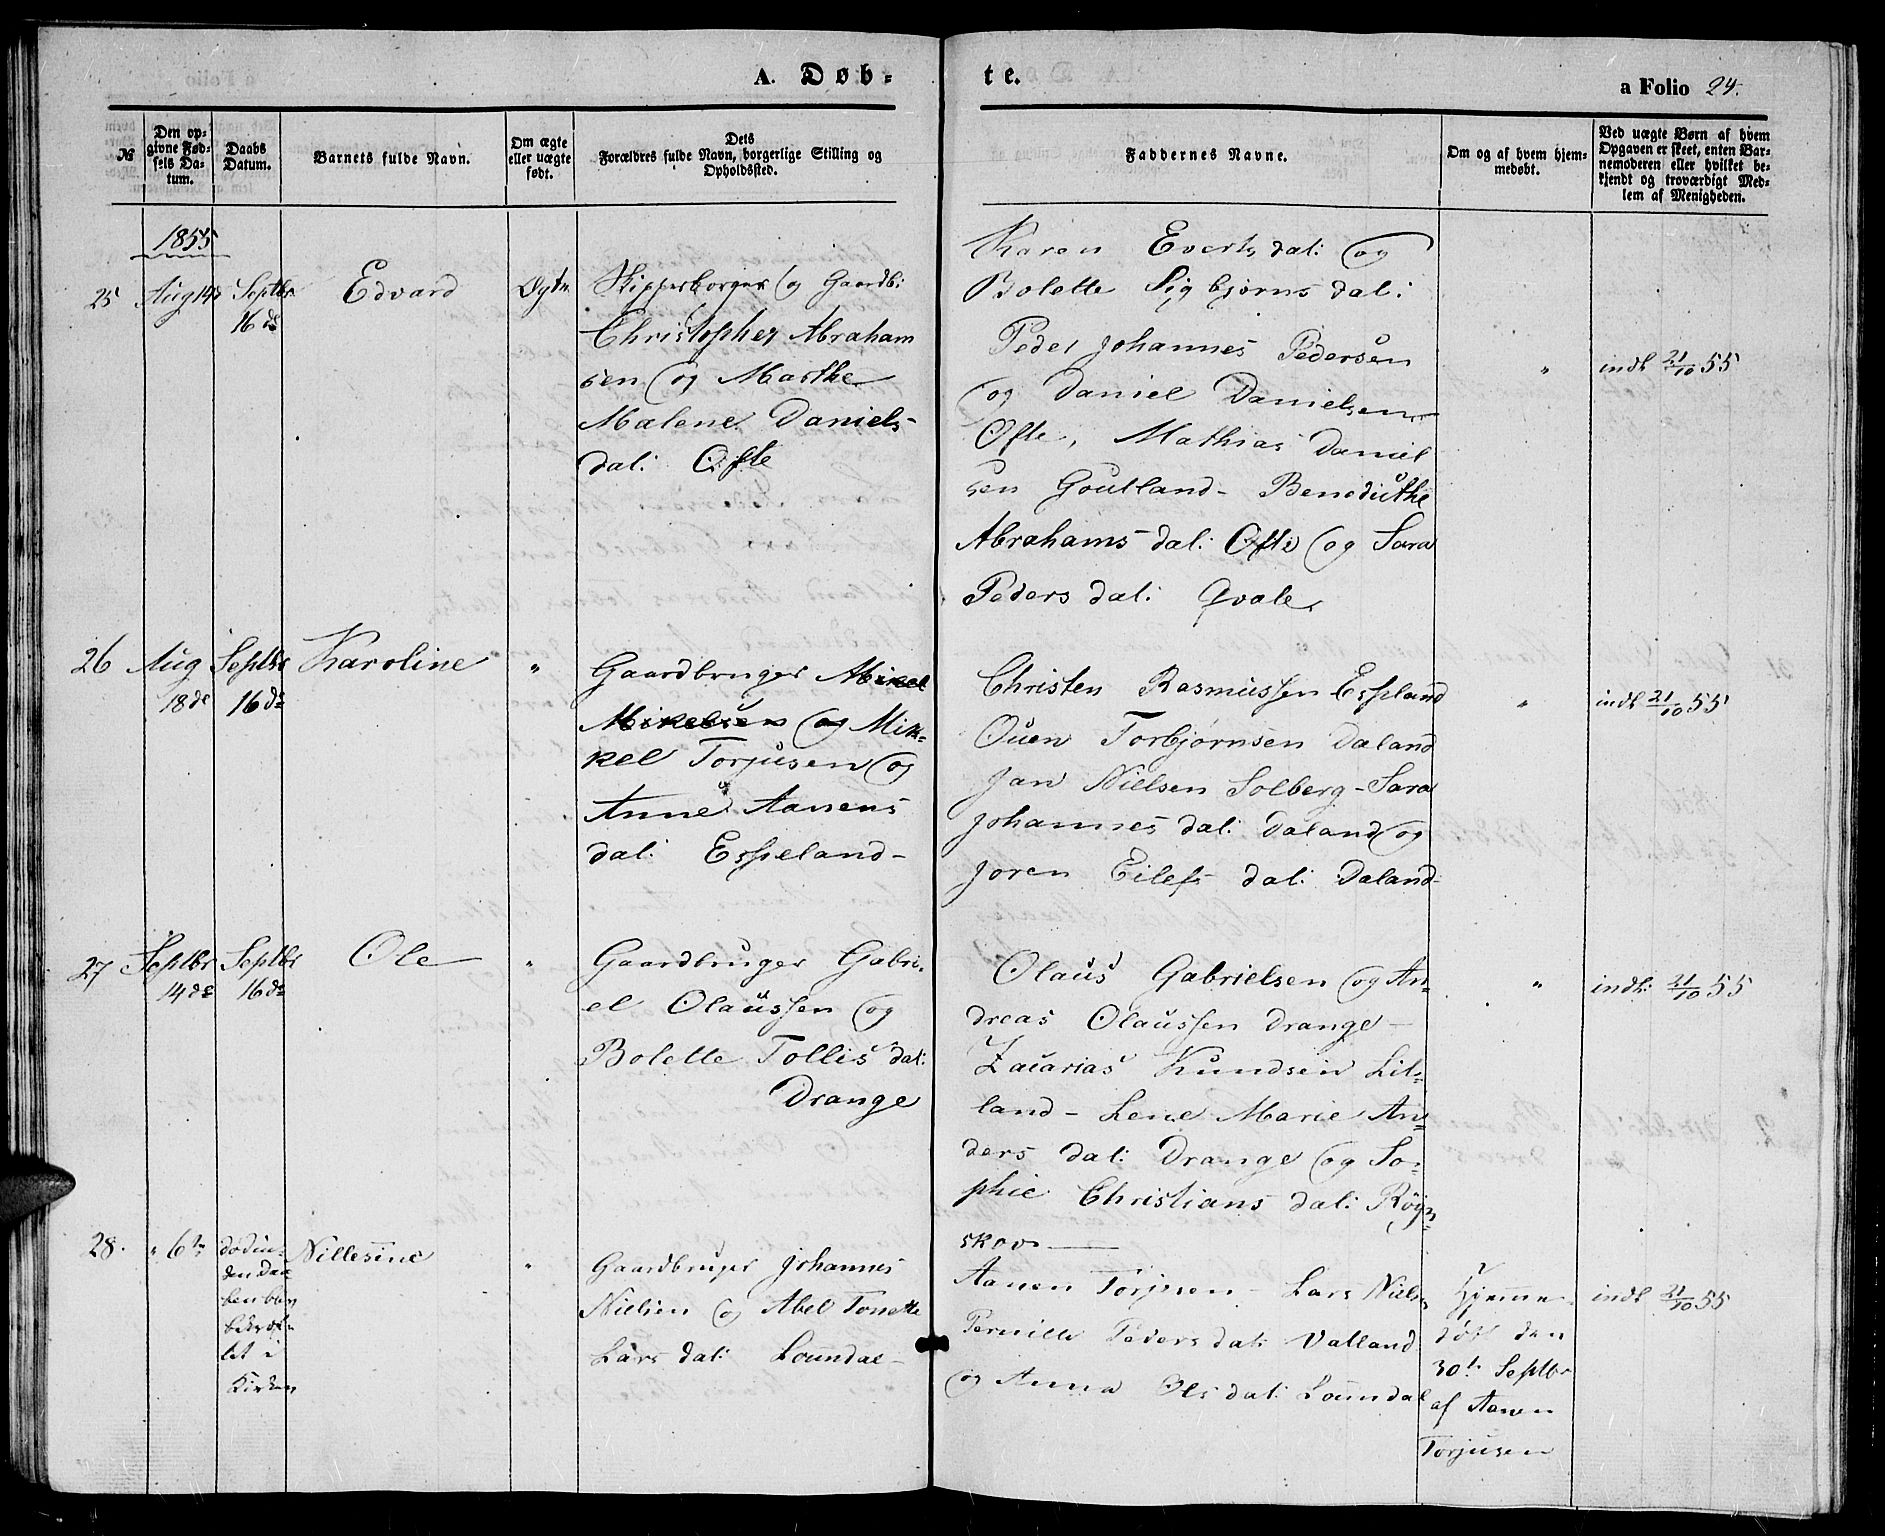 A. Døb-
te.
a Folio 24.
№
Den op-
givne Fød-
sels Da-
tum.
Daabs
Datum.
Barnets fulde Navn.
Om ægte
eller uægte
født.
Dets
Forældres fulde Navn, borgerlige Stilling og
Opholdssted.
Faddernes Navne.
Om og af hvem hjem-
medøbt.
Ved uægte Børn af hvem
Opgaven er skeet, enten Bar-
nemoderen eller hvilket be-
kjendt og troværdigt Med-
lem af Menigheden.
1855
Karen Everts dal: og
Bolette Sigbjørns dal:
25 Aug 14 Septbr
16 de
Edvard
Ægte
Skipperborger og Gaardb:
Christopher Abraham
sen og Marthe
Malene Daniels-
dal: Ofte
Peder Johannes Pedersen
og Daniel Danielsen
Ofte, Mathias Daniel
sen Goutland - Benedicthe
Abrahams dal: Ofte og Sara
Peders dal: Qvale
"
indl 21/10 55
26 Aug
18 de
Septbr
16 de
Karoline
"
Gaardbruger Mikel
Mikelsen og Mik-
kel Torjusen og
Anne Aanens
dal: Espeland -
Christen Rasmussen Espland
Ouen Torbjørnsen Daland
Jan Nielsen Solberg - Sara
Johannes dal: Daland og
Joren Eilefs dal: Daland
"
indl 21/10 55
27 Septbr
14 de
Septbr
16 de
Ole
"
Gaardbruger Gabri-
el Olaussen og
Bolette Tollis dal:
Drange
Olaus Gabrielsen og An-
dreas Olaussen Drange -
Zacarias Kundsen Lit-
land - Lene Marie An-
ders dal: Drange og So-
phie Christians dal: Røÿn-
skov
"
indl: 21/10 55
28. " 6te
død in-
den Daa
ben blev
bekræf
tet i
Kirken
Nillesine
"
Gaardbruger Johannes
Nielsen og Abel Tonette
Lars dal: Loundal -
Aanen Torjusen - Lars Niels
Pernille Peders dal: Valland
og Anna Ols dal: Loundal
Hjemme
døbt den
30te Septbr
af Aanen
Torjusen
indl 21/10 55